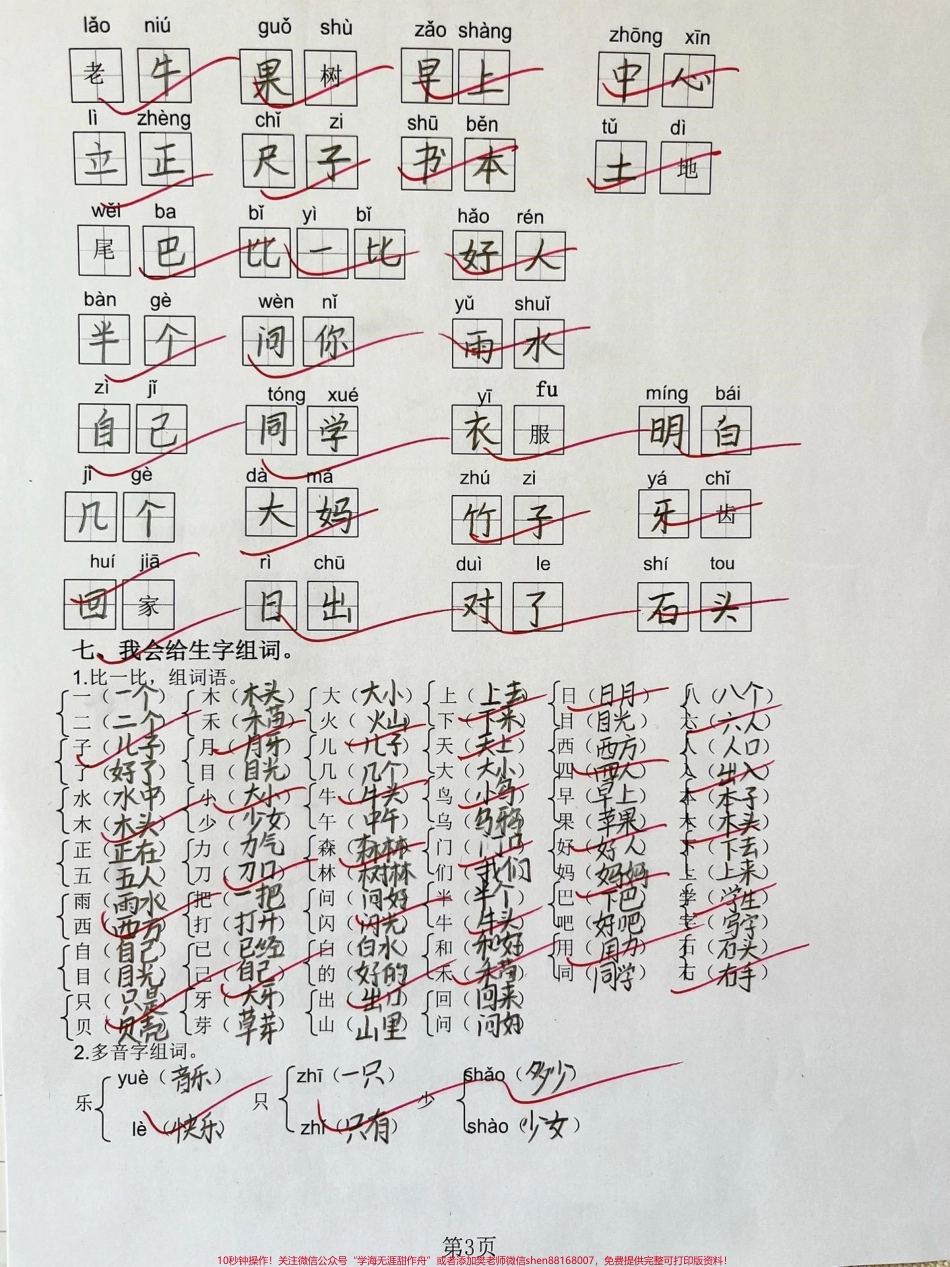 lǎo niú guǒ shù zǎo shàng zhōng xīn
老 牛 果 树 早 上 中 心
lì zhèng chǐ zi shū běn tǔ dì
立 正 尺 子 书 本 土 地
wěi ba bǐ yì bǐ hǎo rén
尾 巴 比 一 比 好 人
bàn gè wèn nǐ yǔ shuǐ
半 个 问 你 雨 水
zì jǐ tóng xué yī fu míng bái
自 己 同 学 衣 服 明 白
jǐ gè dà mā zhú zi yá chǐ
几 个 大 妈 竹 子 牙 齿
huí jiā rì chū duì le shí tou
回 家 日 出 对 了 石 头
七、我会给生字组词。
1.比一比，组词语。
一（一个） 木（木头） 大（大小） 上（上去） 日（日月） 八（八个）
二（二个） 禾（禾苗） 火（火山） 下（下来） 目（目光） 六（六人）
子（儿子） 月（月牙） 儿（儿子） 天（天上） 西（西方） 人（人口）
了（好了） 目（目光） 几（几个） 大（大小） 四（四人） 入（出入）
水（水中） 小（大小） 牛（牛头） 鸟（小鸟） 早（早上） 本（本子）
木（木头） 少（少女） 午（中午） 乌（乌鸦） 果（苹果） 木（木头）
正（正在） 力（力气） 森（森林） 门（门口） 好（好人） 下（下去）
五（五人） 刀（刀口） 林（树林） 们（我们） 妈（妈妈） 上（上来）
雨（雨水） 把（一把） 问（问好） 半（半个） 巴（下巴） 学（学生）
西（西方） 打（打开） 闪（闪光） 牛（牛头） 吧（好吧） 字（写字）
自（自己） 已（已经） 白（白水） 和（和好） 用（用力） 石（石头）
目（目光） 己（自己） 的（好的） 禾（禾苗） 同（同学） 右（右手）
只（只是） 牙（大牙） 出（出口） 回（回来）
贝（贝壳） 芽（草芽） 山（山里） 问（问好）
2.多音字组词。
yuè（音乐） zhī（一只） shǎo（多少）
乐 只 少
lè（快乐） zhǐ（只有） shào（少女）
第3页
10秒钟操作！关注微信公众号“学海无涯甜作舟”或者添加樊老师微信shen88168007，免费提供完整可打印版资料！